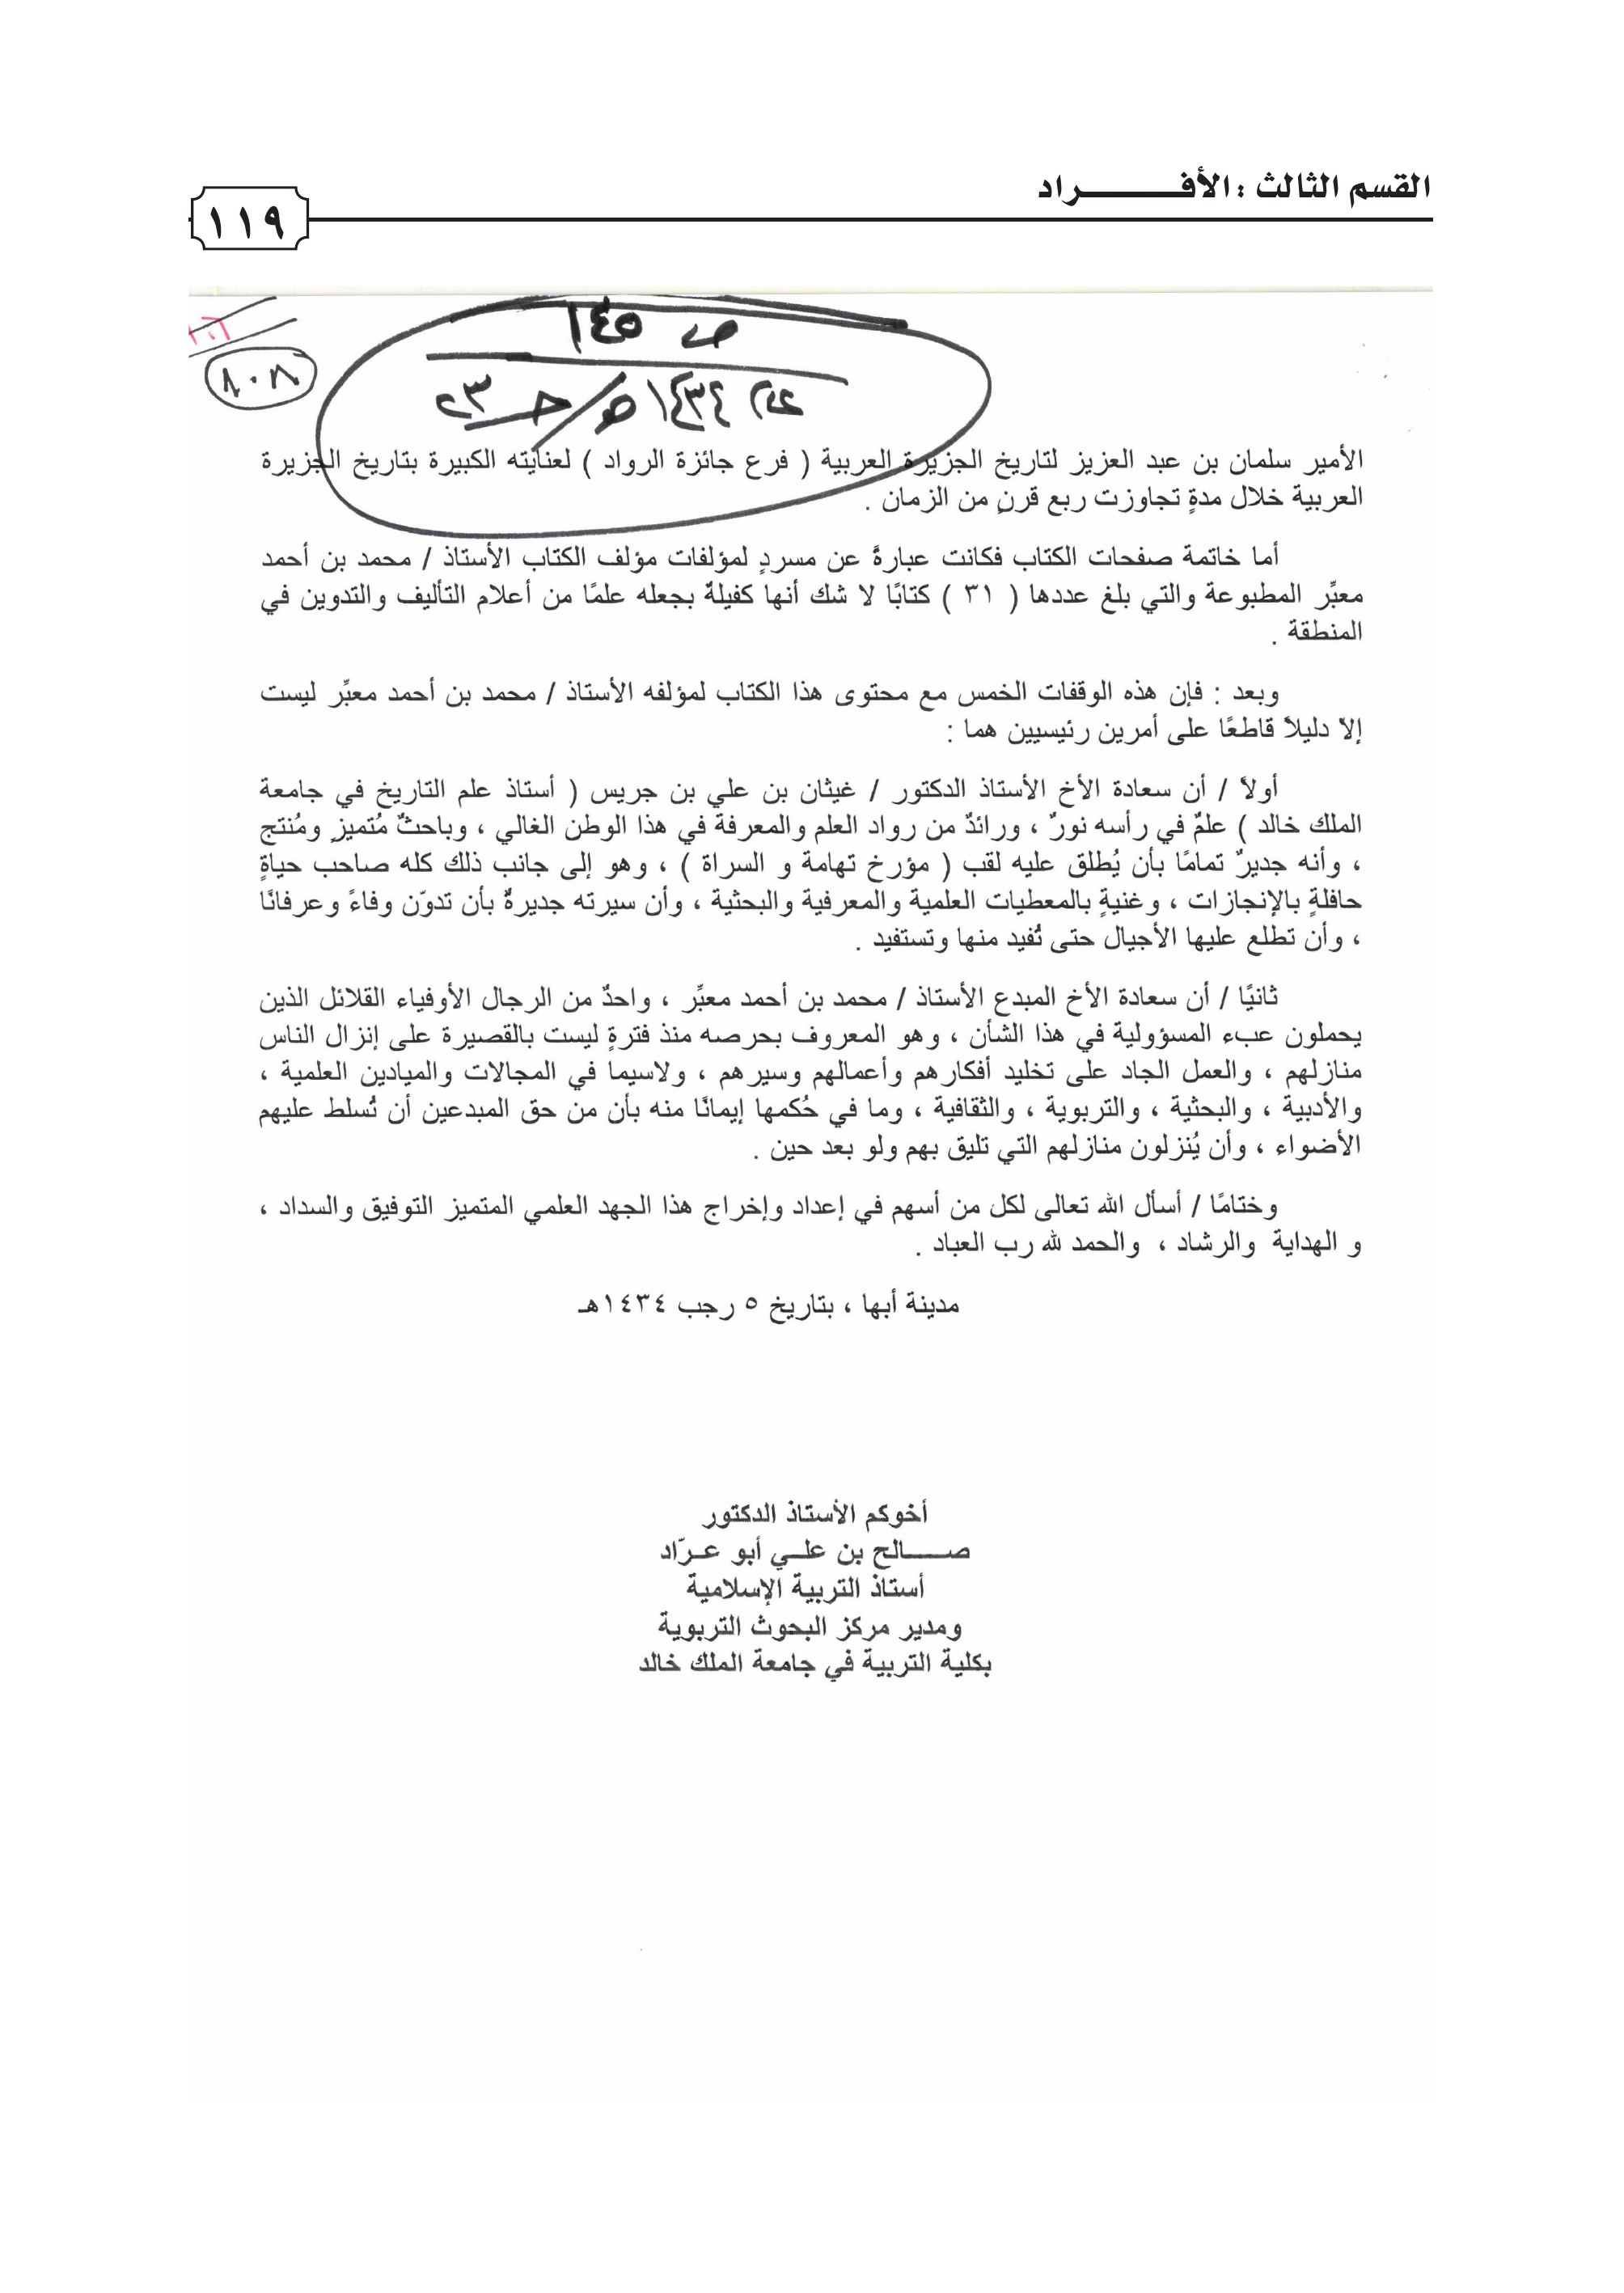 القسم الثالث : الأفـــــــــراد
١١٩
ص ١٤٥
١٤٣٤هـ/جـ٢٣
٨٠٨
الأمير سلمان بن عبد العزيز لتاريخ الجزيرة العربية ( فرع جائزة الرواد ) لعنايته الكبيرة بتاريخ الجزيرة
العربية خلال مدةٍ تجاوزت ربع قرنٍ من الزمان .
أما خاتمة صفحات الكتاب فكانت عبارةً عن مسردٍ لمؤلفات مؤلف الكتاب الأستاذ / محمد بن أحمد
معبِّر المطبوعة والتي بلغ عددها ( ٣١ ) كتابًا لا شك أنها كفيلةٌ بجعله علمًا من أعلام التأليف والتدوين في
المنطقة .
وبعد : فإن هذه الوقفات الخمس مع محتوى هذا الكتاب لمؤلفه الأستاذ / محمد بن أحمد معبِّر ليست
إلا دليلاً قاطعًا على أمرين رئيسيين هما :
أولاً / أن سعادة الأخ الأستاذ الدكتور / غيثان بن علي بن جريس ( أستاذ علم التاريخ في جامعة
الملك خالد ) علمٌ في رأسه نورٌ ، ورائدٌ من رواد العلم والمعرفة في هذا الوطن الغالي ، وباحثٌ مُتميزٍ ومُنتج
، وأنه جديرٌ تمامًا بأن يُطلق عليه لقب ( مؤرخ تهامة و السراة ) ، وهو إلى جانب ذلك كله صاحب حياةٍ
حافلةٍ بالإنجازات ، وغنيةٍ بالمعطيات العلمية والمعرفية والبحثية ، وأن سيرته جديرةٌ بأن تدوّن وفاءً وعرفانًا
، وأن تطلع عليها الأجيال حتى تُفيد منها وتستفيد .
ثانيًا / أن سعادة الأخ المبدع الأستاذ / محمد بن أحمد معبِّر ، واحدٌ من الرجال الأوفياء القلائل الذين
يحملون عبء المسؤولية في هذا الشأن ، وهو المعروف بحرصه منذ فترةٍ ليست بالقصيرة على إنزال الناس
منازلهم ، والعمل الجاد على تخليد أفكارهم وأعمالهم وسيرهم ، ولاسيما في المجالات والميادين العلمية ،
والأدبية ، والبحثية ، والتربوية ، والثقافية ، وما في حُكمها إيمانًا منه بأن من حق المبدعين أن تُسلط عليهم
الأضواء ، وأن يُنزلون منازلهم التي تليق بهم ولو بعد حين .
وختامًا / أسأل الله تعالى لكل من أسهم في إعداد وإخراج هذا الجهد العلمي المتميز التوفيق والسداد ،
و الهداية والرشاد ، والحمد لله رب العباد .
مدينة أبها ، بتاريخ ٥ رجب ١٤٣٤هـ
أخوكم الأستاذ الدكتور
صـــــالح بن علــي أبو عــرّاد
أستاذ التربية الإسلامية
ومدير مركز البحوث التربوية
بكلية التربية في جامعة الملك خالد